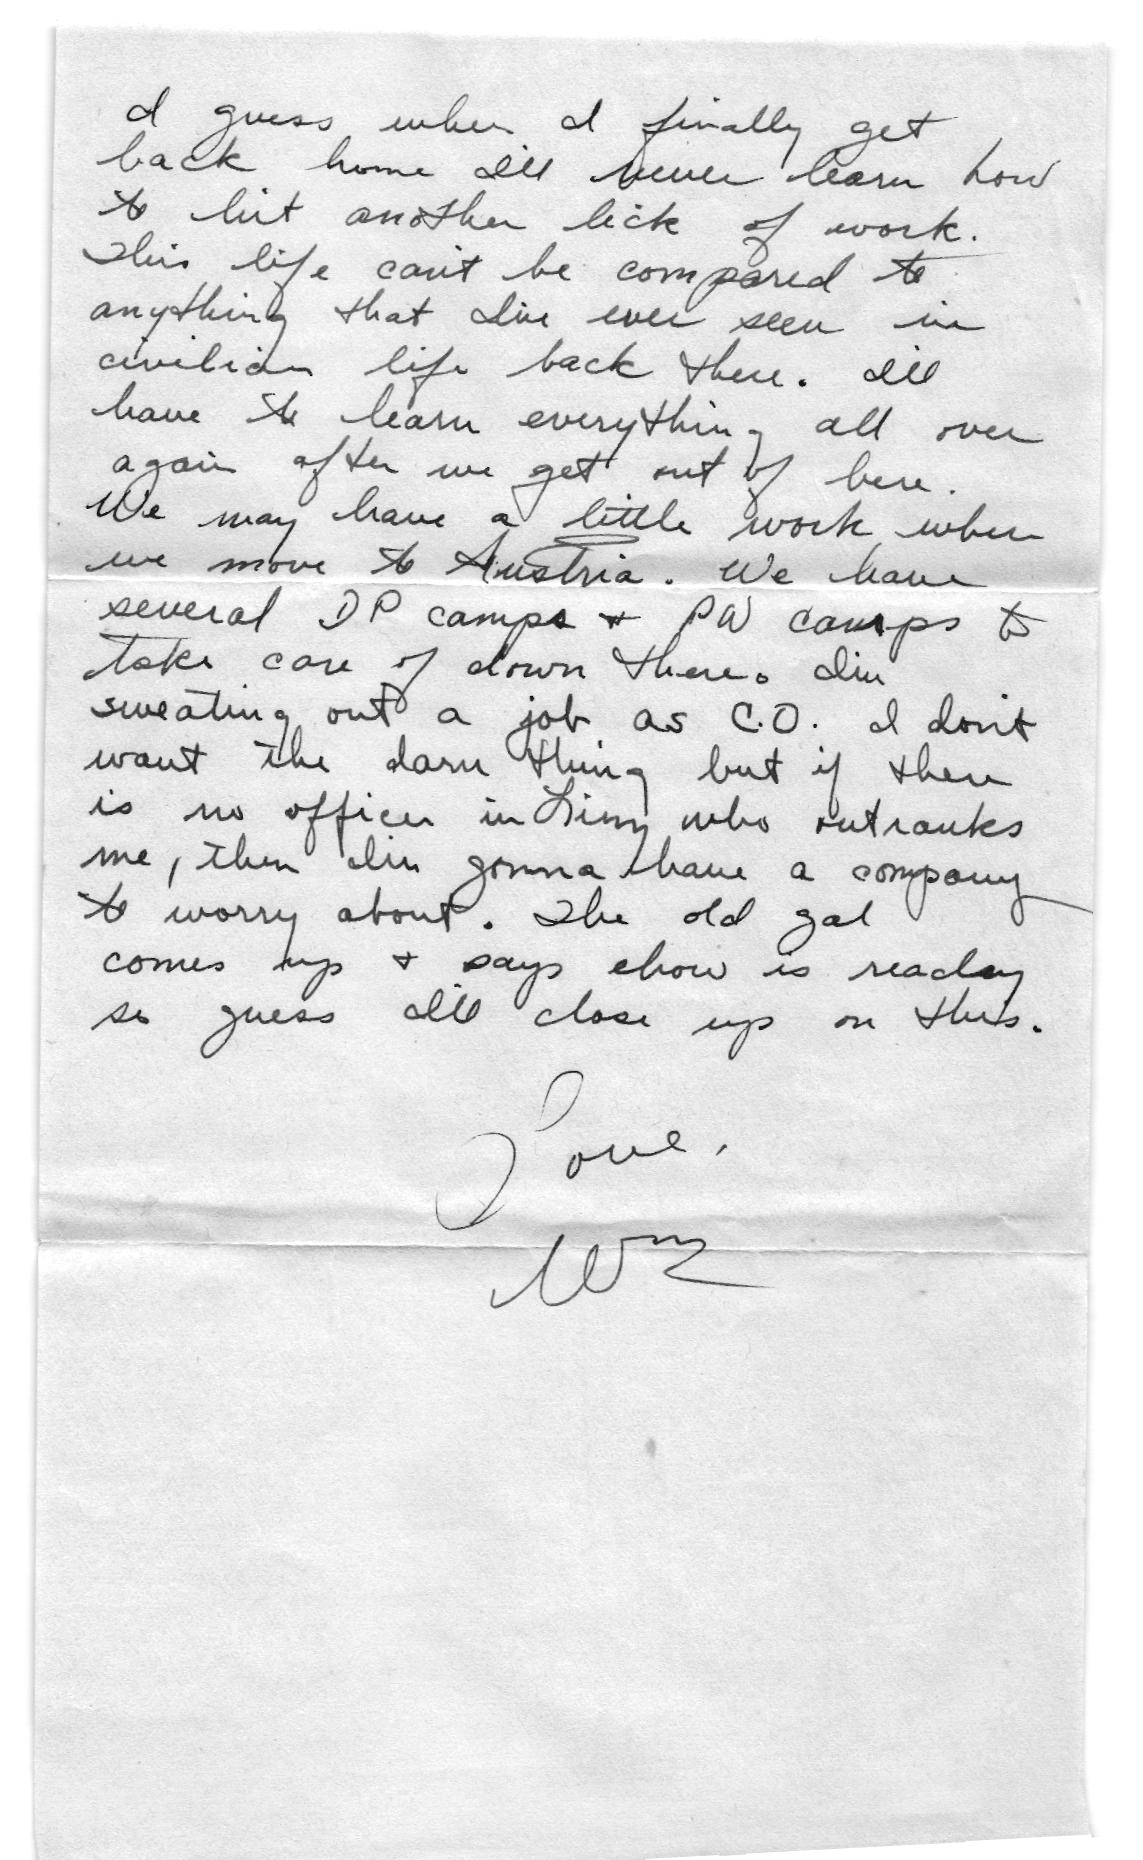 I guess when I finally get
back home I'll never learn how
to hit another lick of work.
This life can't be compared to
anything that I've ever seen in
civilian life back there. I'll
have to learn everything all over
again after we get out of here.
We may have a little work when
we move to Austria. We have
several DP camps + PW camps to
take care of down there. I'm
sweating out a job as C.O. I don't
want the darn thing but if there
is no officer in Linz who outranks
me, then I'm gonna have a company
to worry about. The old gal
comes up + says chow is ready
so guess I'll close up on this.
Love,
Wm